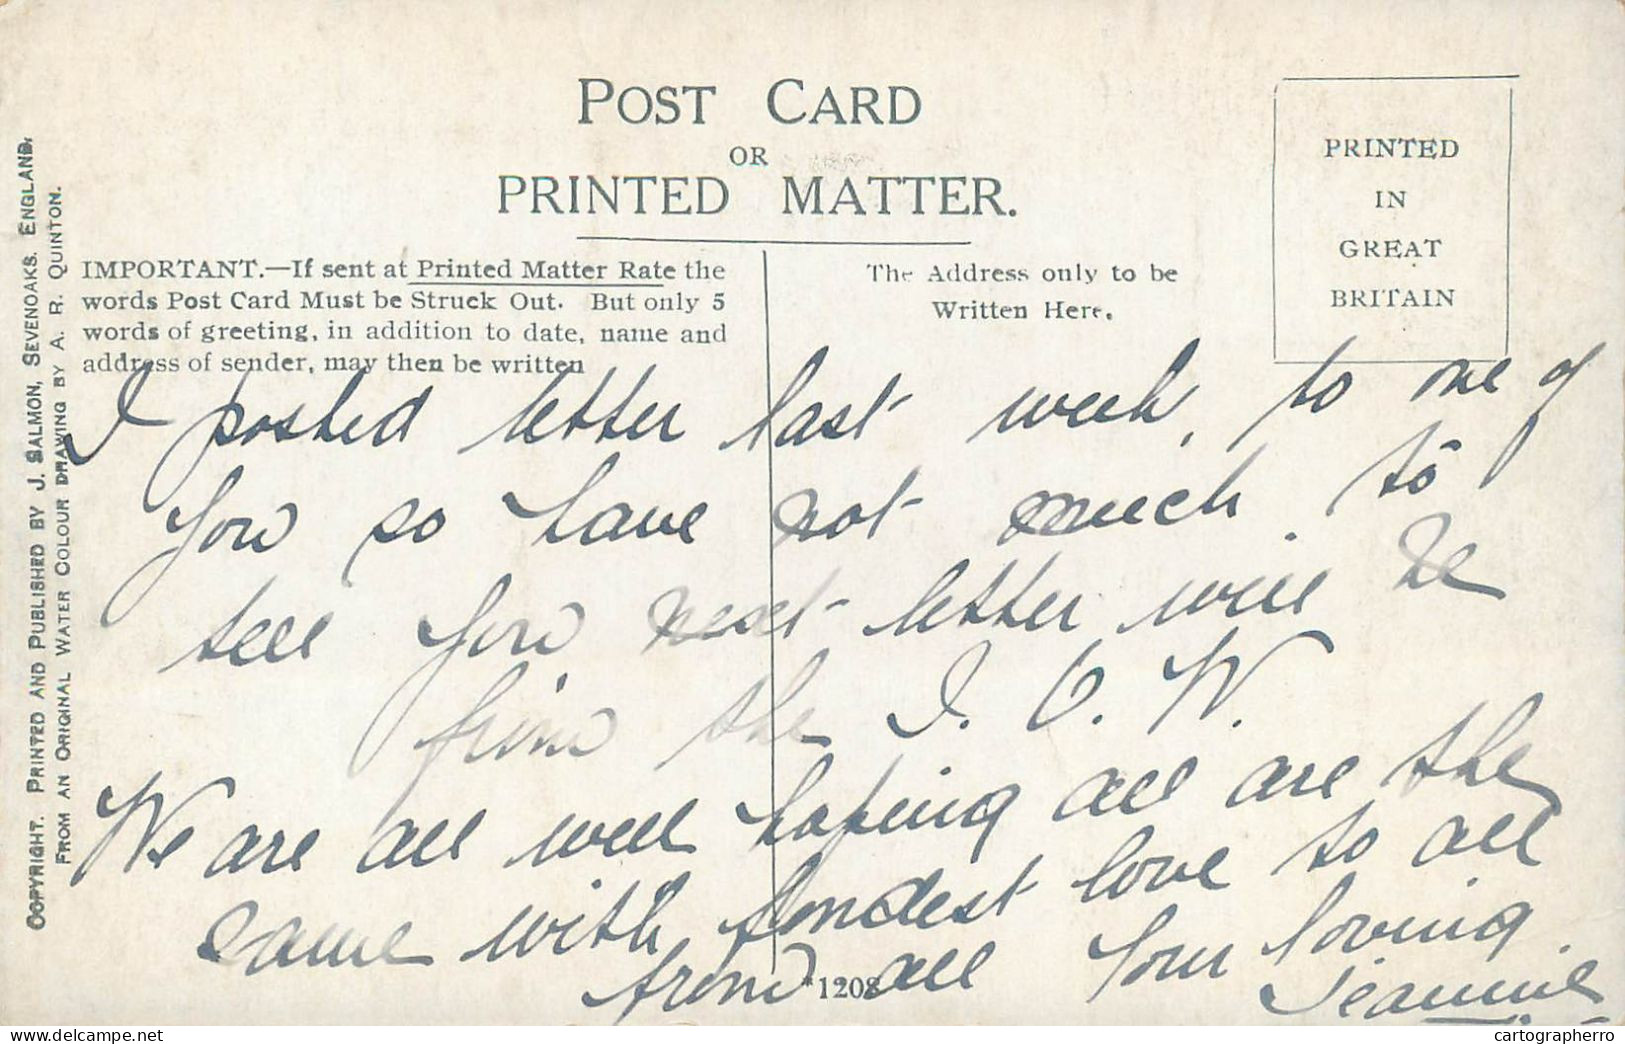 POST CARD
OR
PRINTED MATTER.
PRINTED
IN
GREAT
BRITAIN
IMPORTANT.—If sent at Printed Matter Rate the
words Post Card Must be Struck Out. But only 5
words of greeting, in addition to date, name and
address of sender, may then be written
The Address only to be
Written Here.
COPYRIGHT. PRINTED AND PUBLISHED BY J. SALMON, SEVENOAKS. ENGLAND.
FROM AN ORIGINAL WATER COLOUR DRAWING BY A. R. QUINTON.
I posted letter last week, to one of
you so have not much to
tell you next letter will be
from the I. O. W.
We are all well hoping all are the
same with fondest love to all
from all your loving
Jeannie
*1208
cartographerro